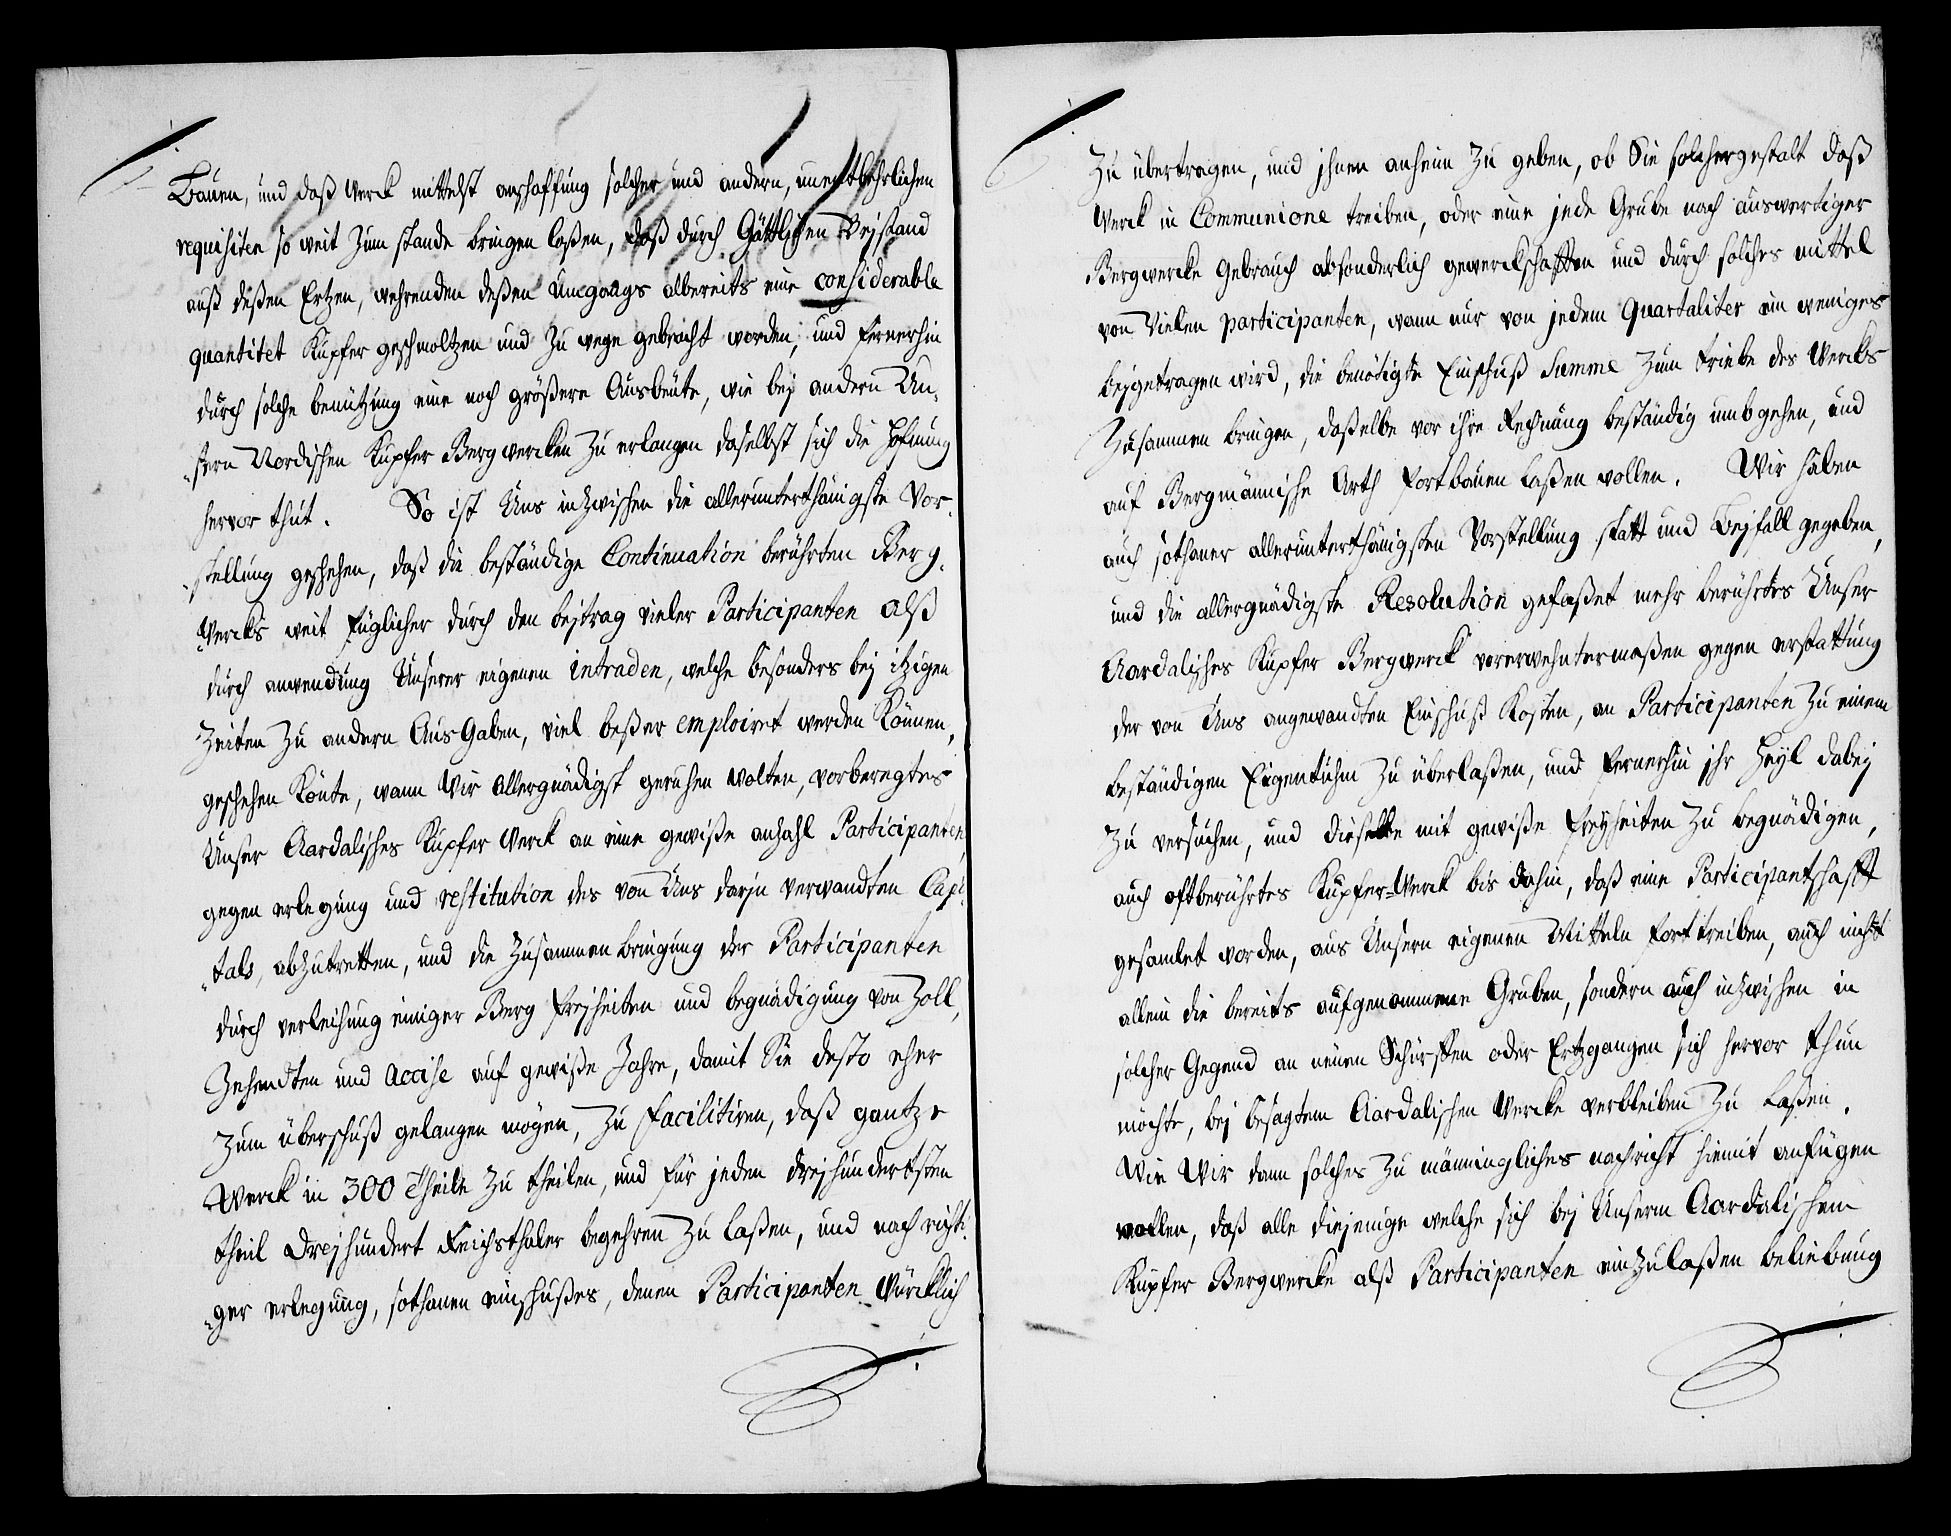 Bauen, und daß Werck mittelst anschaffung solcher und andern, unentbehrlichen
requisiten so weit zum stande bringen laßen, daß durch Göttlichen Beystand
auß deßen Ertzen, wehrenden deßen Umgangs albereits eine considerable
quantitet Kupfer geschmoltzen und zu wege gebracht worden, und fernerhin
durch solche benützung eine noch größere Ausbeute, wie bej andern Un-
sern Nordischen Kupfer Bergwercken zu erlangen daselbst sich die Hofnung
hervor thut. So ist Uns inzwischen die allerunterthänigste Vor-
stellung geschehen, daß die beständige Continuation berührten Berg-
Wercks weit füglicher durch den beytrag vieler Participanten alß
durch anwendung Unserer eigenen intraden, welche besonders bej itzigen
Zeiten zu andern AusGaben, viel beßer emploiret werden Können,
geschehen Könte, wann Wir Allergnädigst geruhen wolten, vorberegtes
Unser Aardalisches Kupfer Werck an eine gewiße anzahl Participanten,
gegen erlegung und restitution des von Uns darjn verwandten Capi-
tals, abzutretten, und die Zusammenbringung der Participanten
durch verleihung einiger Berg freyheiten und begnädigung von Zoll,
Zehendten und Accise auf gewiße Jahre, damit Sie desto eher
zum überschuß gelangen mögen, zu facilitiren, daß gantze
Werck in 300 Theile zu theilen, und für jeden dreyhundertsten
theil Dreyhundert Reichsthaler begehren zu laßen, und nach richti-
ger erlegung, sothanen einschußes, denen Participanten Würcklich
Zu übertragen, und jhnen anheim zu geben, ob Sie solchergestalt daß
Werck in Communione treiben, oder eine jede Grube nach auswertiger
Bergwercke Gebrauch absonderlich gewerckschafften und durch solches mittel
von Vielen participanten, wann nur von jedem Quartaliter ein weniges
beygetragen wird, die benötigte Einschuß Summe zum triebe des Wercks
Zusammen bringen, daßelbe vor ihre Rechnung beständig umbgehen, und
auf Bergmännische Arth fortbauen laßen wollen. Wir haben
auch sothaner allerunterthänigsten Vorstellung statt und Beyfall gegeben,
und die allergnädigste Resolution gefaßet mehr berührtes Unser
Aardalisches Kupfer Bergwerck vorerwehntermaßen gegen erstattung
der von Uns angewandten Einschuß Kosten, an Participanten zu einem
beständigen Eigentuhm zu überlaßen, und fernerhin jhr Heyl dabej
zu versuchen, und dieselbe mit gewiße freyheiten zu begnädigen,
auch oftberührtes Kupfer-Werck bis dahin, daß eine Participantschafft
gesamlet worden, aus Unsern eigenen Mitteln fort treiben, auch nicht
allein die bereits aufgenommene Gruben, sondern auch inzwischen in
solcher Gegend an neuen Schürffen oder Ertzgangen sich hervor thun
möchte, bej besagtem Aardalischen Wercke verbleiben zu laßen.
Wie Wir dann solches zu männigliches nachricht hiemit anfügen
wollen, daß alle diejenige welche sich bej Unserm Aardalischem
Kupfer Bergwercke alß Participanten einzulaßen beliebung